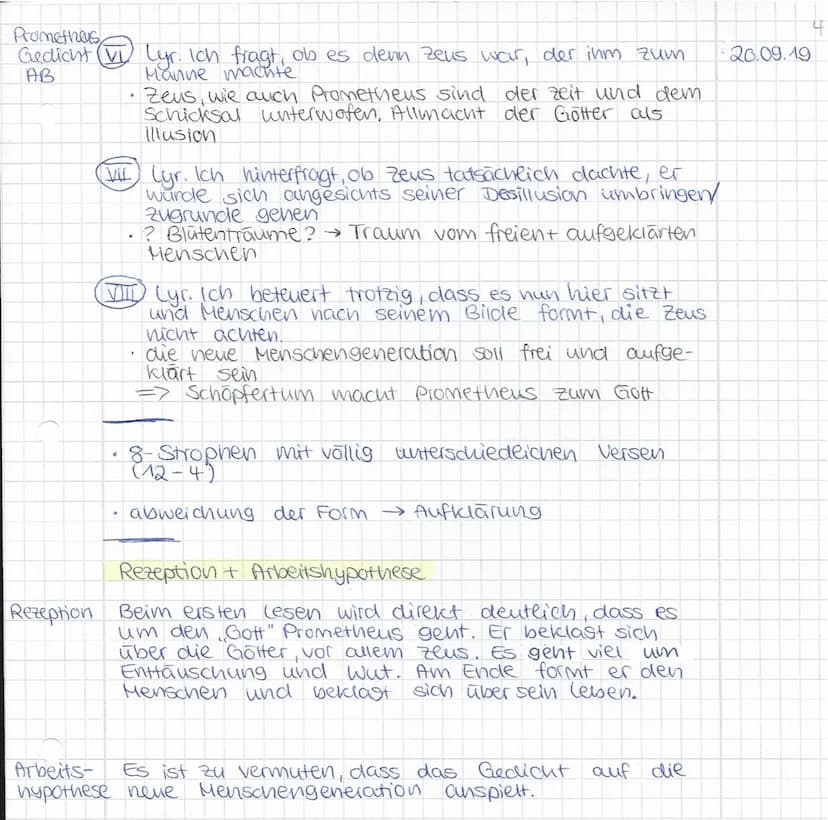 4
Prometheus
Gedicht (VI) Lyr. Ich fragt, ob es denn Zeus war, der ihm zum 20.09.19
AB Manne machte
· Zeus, wie auch Prometheus sind der Zeit und dem
Schicksal unterwofen, Allmacht der Götter als
Illusion
(VII) Lyr. Ich hinterfragt, ob Zeus tatsächlich dachte, er
würde sich angesichts seiner Desillusion umbringen/
zugrunde gehen
· ? Blütenträume? → Traum vom freien + aufgeklärten
Menschen
(VIII) Lyr. Ich beteuert trotzig, dass es nun hier sitzt
und Menschen nach seinem Bilde formt, die Zeus
nicht achten.
· die neue Menschengeneration soll frei und aufge-
klärt sein
=> Schöpfertum macht Prometheus zum Gott
· 8-Strophen mit völlig unterschiedlichen Versen
(12-4)
· abweichung der Form → Aufklärung
Rezeption + Arbeitshypothese
Rezeption Beim ersten lesen wird direkt deutlich, dass es
um den „Gott" Prometheus geht. Er beklagt sich
über die Götter, vor allem Zeus. Es geht viel um
Enttäuschung und Wut. Am Ende formt er den
Menschen und beklagt sich über sein leben.
Arbeits- Es ist zu vermuten, dass das Gedicht auf die
hypothese neue Menschengeneration anspielt.